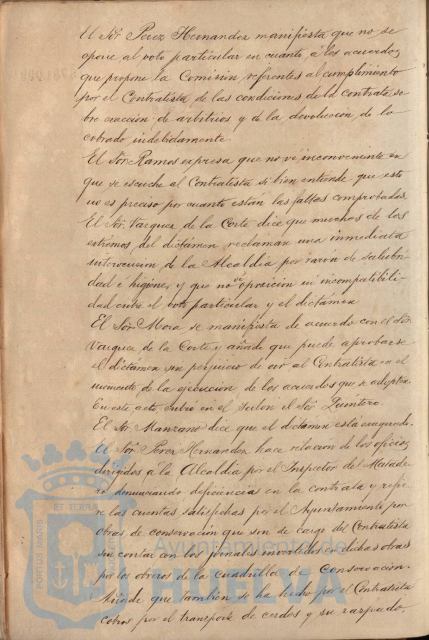 El Sõr Perez Hernandez manifiesta que no se
opone al voto particular en cuanto á los acuerdos
que propone la Comisión, referentes al cumplimiento
por el Contratista de las condiciones de la contrata, so
bre exacción de arbitrios y á la devolucion de lo
cobrado indebidamente
El Sor Ramos expresa que no vé inconveniente en
que se escuche al Contratista si bien entiende que esto
no es preciso por cuanto están las faltas comprobadas
El Sõr Vazquez de la Corte dice que muchos de los
extremos del dictámen reclaman una inmediata
intervención de la Alcaldia por razon de salubri
dad é higiene y que no ve oposición ni incompatibili
dad entre el voto particular y el dictámen
El Sor Mora se manifiesta de acuerdo con el Sõr
Vazquez de la Corte y añade que puede aprobarse
el dictámen sin perjuicio de oir al Contratista en el
momento de la ejecucion de los acuerdos que se adopten.
En este acto entró en el Salon el Sõr Quintero
El Sõr Manzano dice que el dictámen está
El Sõr Perez Hernandez hace relacion de los oficios
dirigidos á la Alcaldia por el Inspector del Matade
ro denunciando deficiencias en la contrata y refie
re las cuentas satisfechas por el Ayuntamiento por
obras de conservación que son de cargo del Contratista
sin contar con los jornales invertidos en dichas obras
por los obreros de la cuadrilla de Conservación.
Añade que tambien se ha hecho por el Contratista
cobros por el transporte de cerdos y su raspado,
Ayuntamiento de
HUELVA
PORTUS MARIS
ET TERRAE